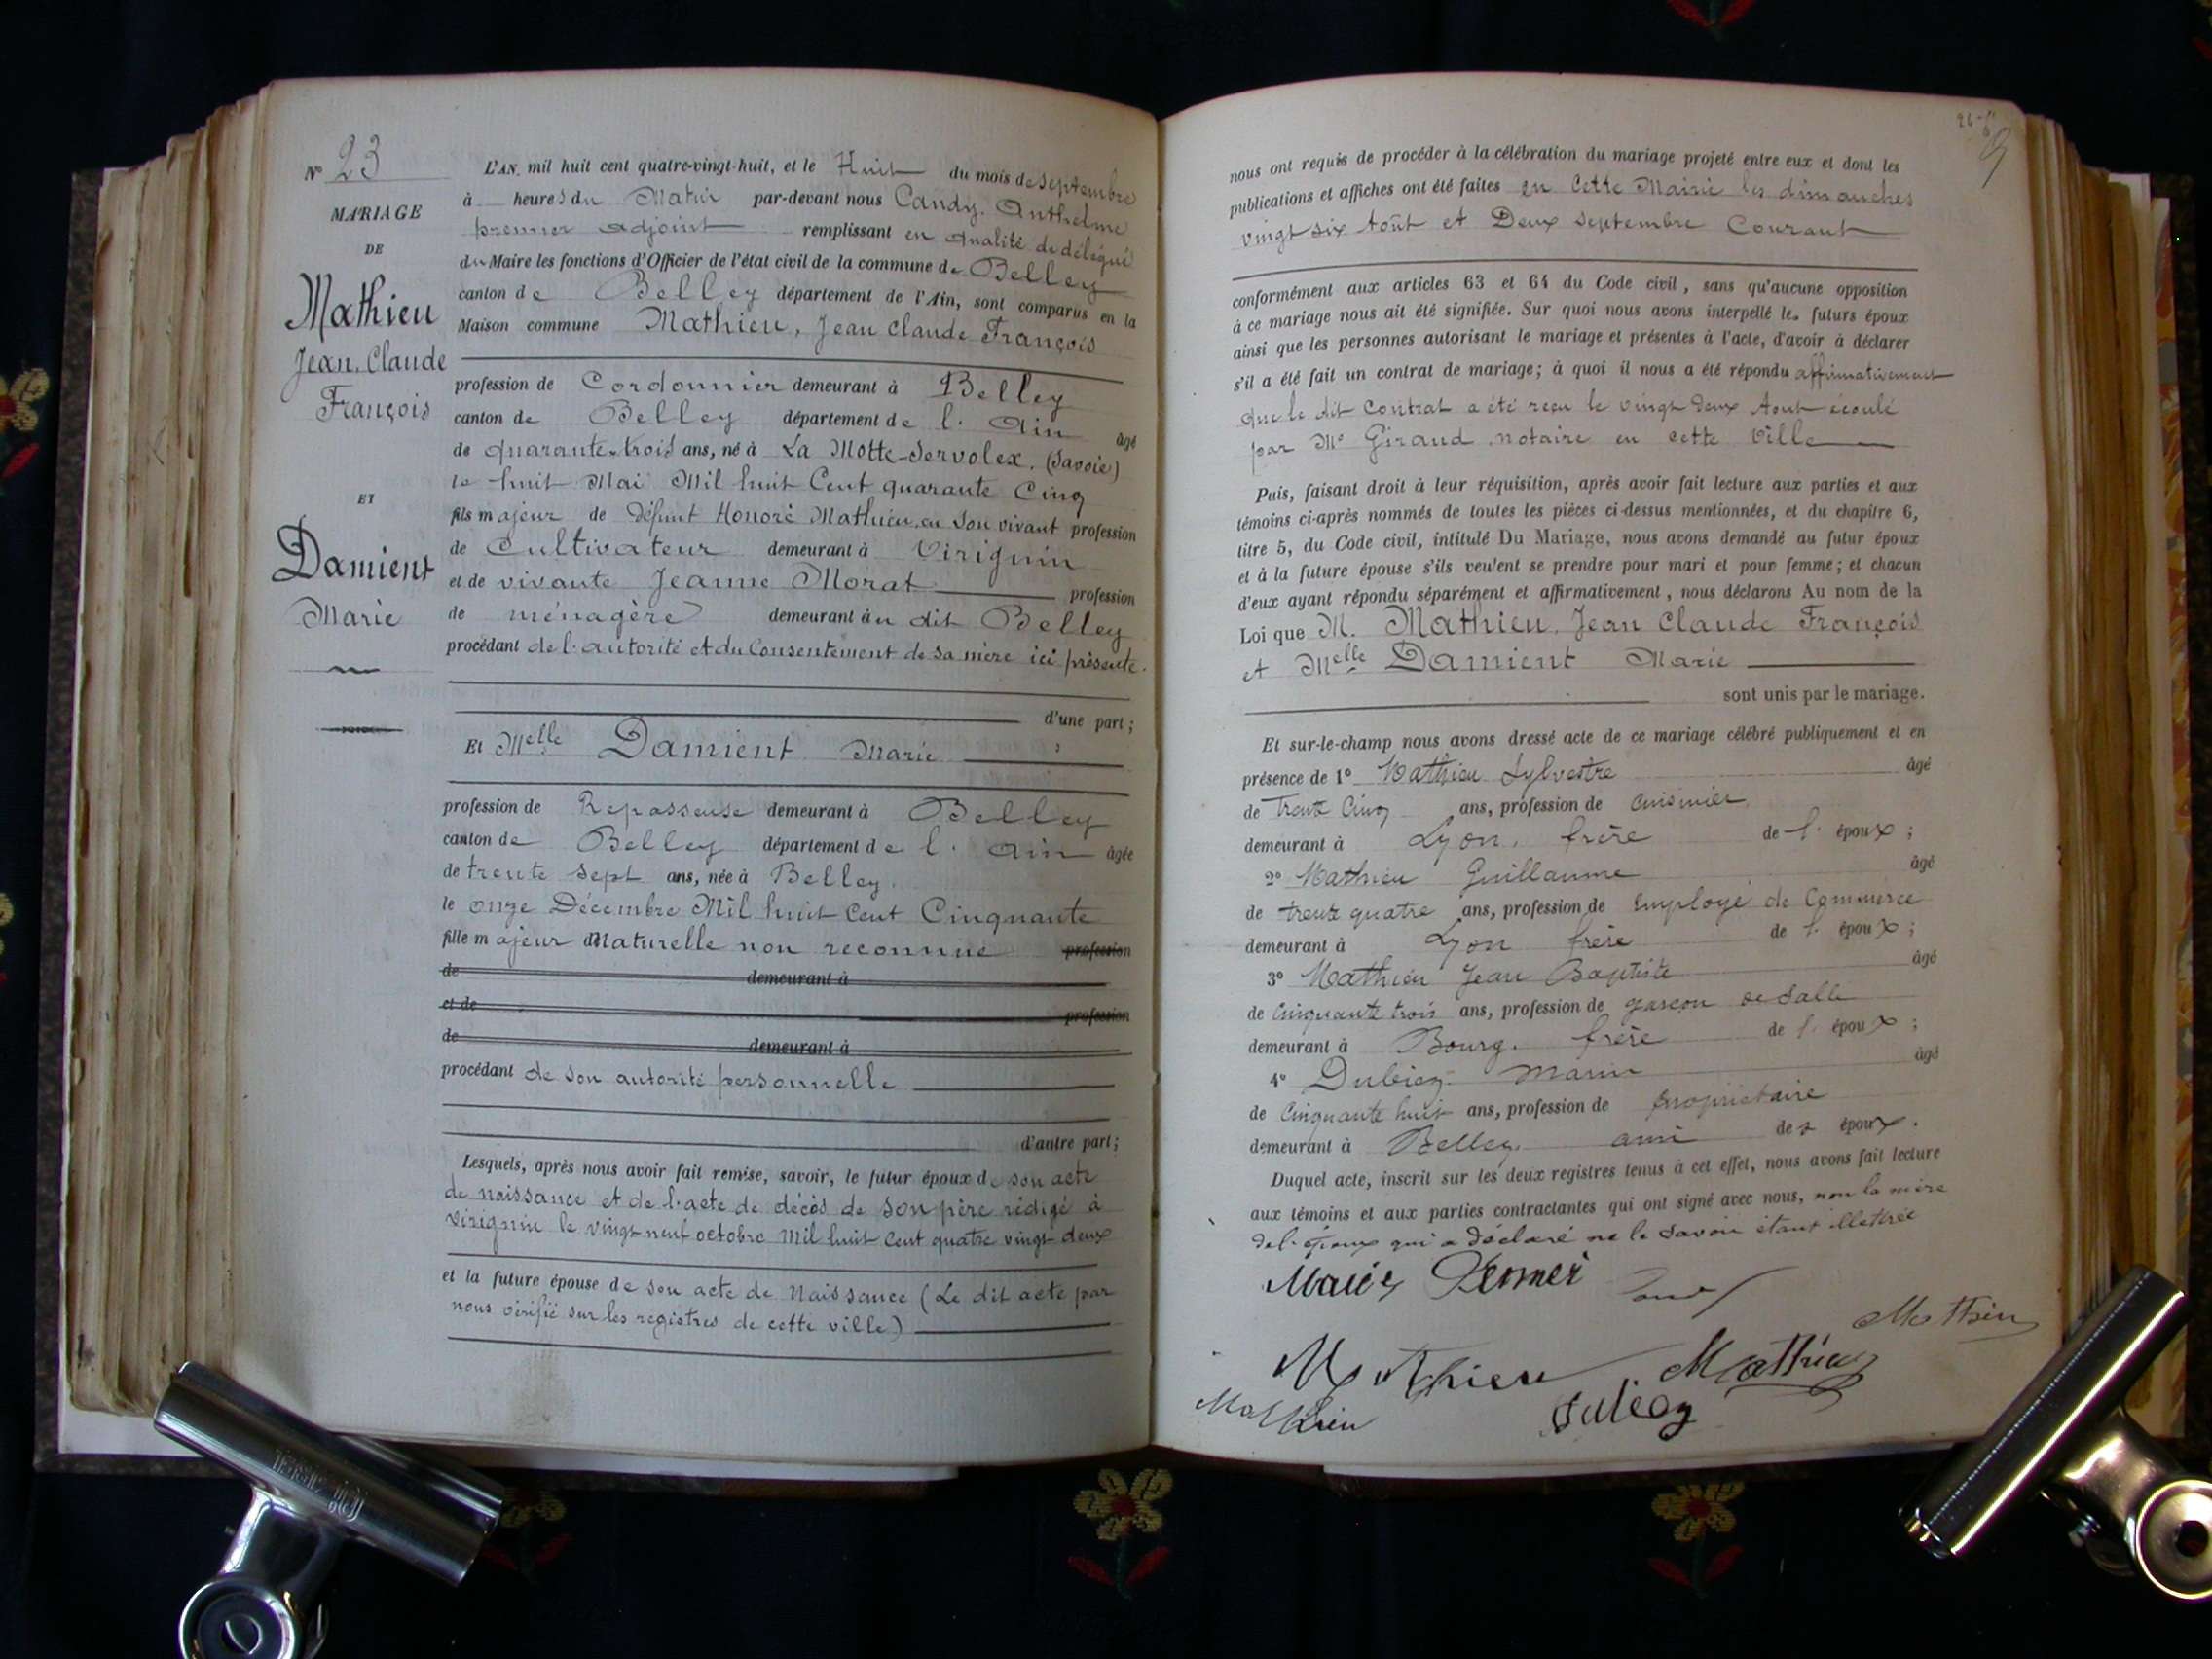 N° 23
MARIAGE
DE
Mathieu
Jean, Claude
François
ET
Damient
Marie
L'AN mil huit cent quatre-vingt-huit, et le Huit du mois de Septembre
à heures du Matin par-devant nous Candy. Anthelme
premier adjoint remplissant en qualité de délégué
du Maire les fonctions d'Officier de l'état civil de la commune de Belley
canton de Belley département de l'Ain, sont comparus en la
Maison commune Mathieu, Jean Claude François
profession de Cordonnier demeurant à Belley
canton de Belley département de l. Ain âgé
de quarante-trois ans, né à La Motte-Servolex. (Savoie)
le huit Mai Mil huit Cent quarante Cinq
fils majeur de Défunt Honoré Mathieu, en son vivant profession
de Cultivateur demeurant à Virignin
et de vivante Jeanne Morat profession
de ménagère demeurant au dit Belley
procédant de l'autorité et du Consentement de sa mère ici présente.
d'une part;
Et Melle Damient Marie
profession de Repasseuse demeurant à Belley
canton de Belley département de l. Ain âgée
de trente sept ans, née à Belley
le onze Décembre Mil huit Cent Cinquante
fille majeur Naturelle non reconnue profession
de demeurant à
et de profession
de demeurant à
procédant de son autorité personnelle
d'autre part;
Lesquels, après nous avoir fait remise, savoir, le futur époux de son acte
de naissance et de l'acte de décès de son père rédigé à
Virignin le vingt neuf octobre Mil huit Cent quatre vingt deux
et la future épouse de son acte de Naissance (Le dit acte par
nous vérifié sur les registres de cette ville)
nous ont requis de procéder à la célébration du mariage projeté entre eux et dont les
publications et affiches ont été faites en Cette Mairie les dimanches
vingt six Août et Deux Septembre Courant
conformément aux articles 63 et 64 du Code civil, sans qu'aucune opposition
à ce mariage nous ait été signifiée. Sur quoi nous avons interpellé les futurs époux
ainsi que les personnes autorisant le mariage et présentes à l'acte, d'avoir à déclarer
s'il a été fait un contrat de mariage; à quoi il nous a été répondu affirmativement
que le dit Contrat a été reçu le vingt deux Aout écoulé
par Me Giraud, notaire en cette Ville
Puis, faisant droit à leur réquisition, après avoir fait lecture aux parties et aux
témoins ci-après nommés de toutes les pièces ci-dessus mentionnées, et du chapitre 6,
titre 5, du Code civil, intitulé Du Mariage, nous avons demandé au futur époux
et à la future épouse s'ils veulent se prendre pour mari et pour femme; et chacun
d'eux ayant répondu séparément et affirmativement, nous déclarons Au nom de la
Loi que M. Mathieu, Jean Claude François
et Melle Damient Marie
sont unis par le mariage.
Et sur-le-champ nous avons dressé acte de ce mariage célébré publiquement et en
présence de 1° Mathieu Sylvestre âgé
de Trente Cinq ans, profession de cuisinier
demeurant à Lyon, frère de l. époux;
2° Mathieu Guillaume âgé
de trente quatre ans, profession de Employé de Commerce
demeurant à Lyon frère de l. époux;
3° Mathieu Jean Baptiste âgé
de Cinquante trois ans, profession de garçon de salle
demeurant à Bourg. frère de l. époux;
4° Dubiez Marin âgé
de Cinquante huit ans, profession de propriétaire
demeurant à Belley. ami des époux.
Duquel acte, inscrit sur les deux registres tenus à cet effet, nous avons fait lecture
aux témoins et aux parties contractantes qui ont signé avec nous, non la mère
de l'époux qui a déclaré ne le savoir étant illettrée
Mathieu
Mathieu
Mathieu
Mathieu